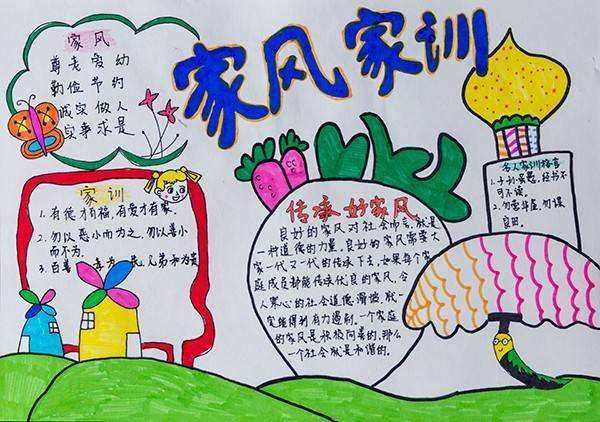 家风家训
家风
尊老爱幼
勤俭节约
诚实做人
实事求是
家训
1.有德才有福,有爱才有家。
2.勿以恶小而为之,勿以善小
而不为.
3.百善孝为先,兄弟和为贵
传承好家风
良好的家风对社会而言,就是
一种道德的力量。良好的家风需要大
家一代又一代的传承下去,如果每个家
庭成员都能传承优良的家风,令
人寒心的社会道德滑坡就一
定能得到有力遏制,一个家庭
的家风是积极向善的,那么
一个社会就是和谐的.
名人家训格言
1.子孙虽愚,经书不
可不读。
2.勿营华屋,勿谋
良田。